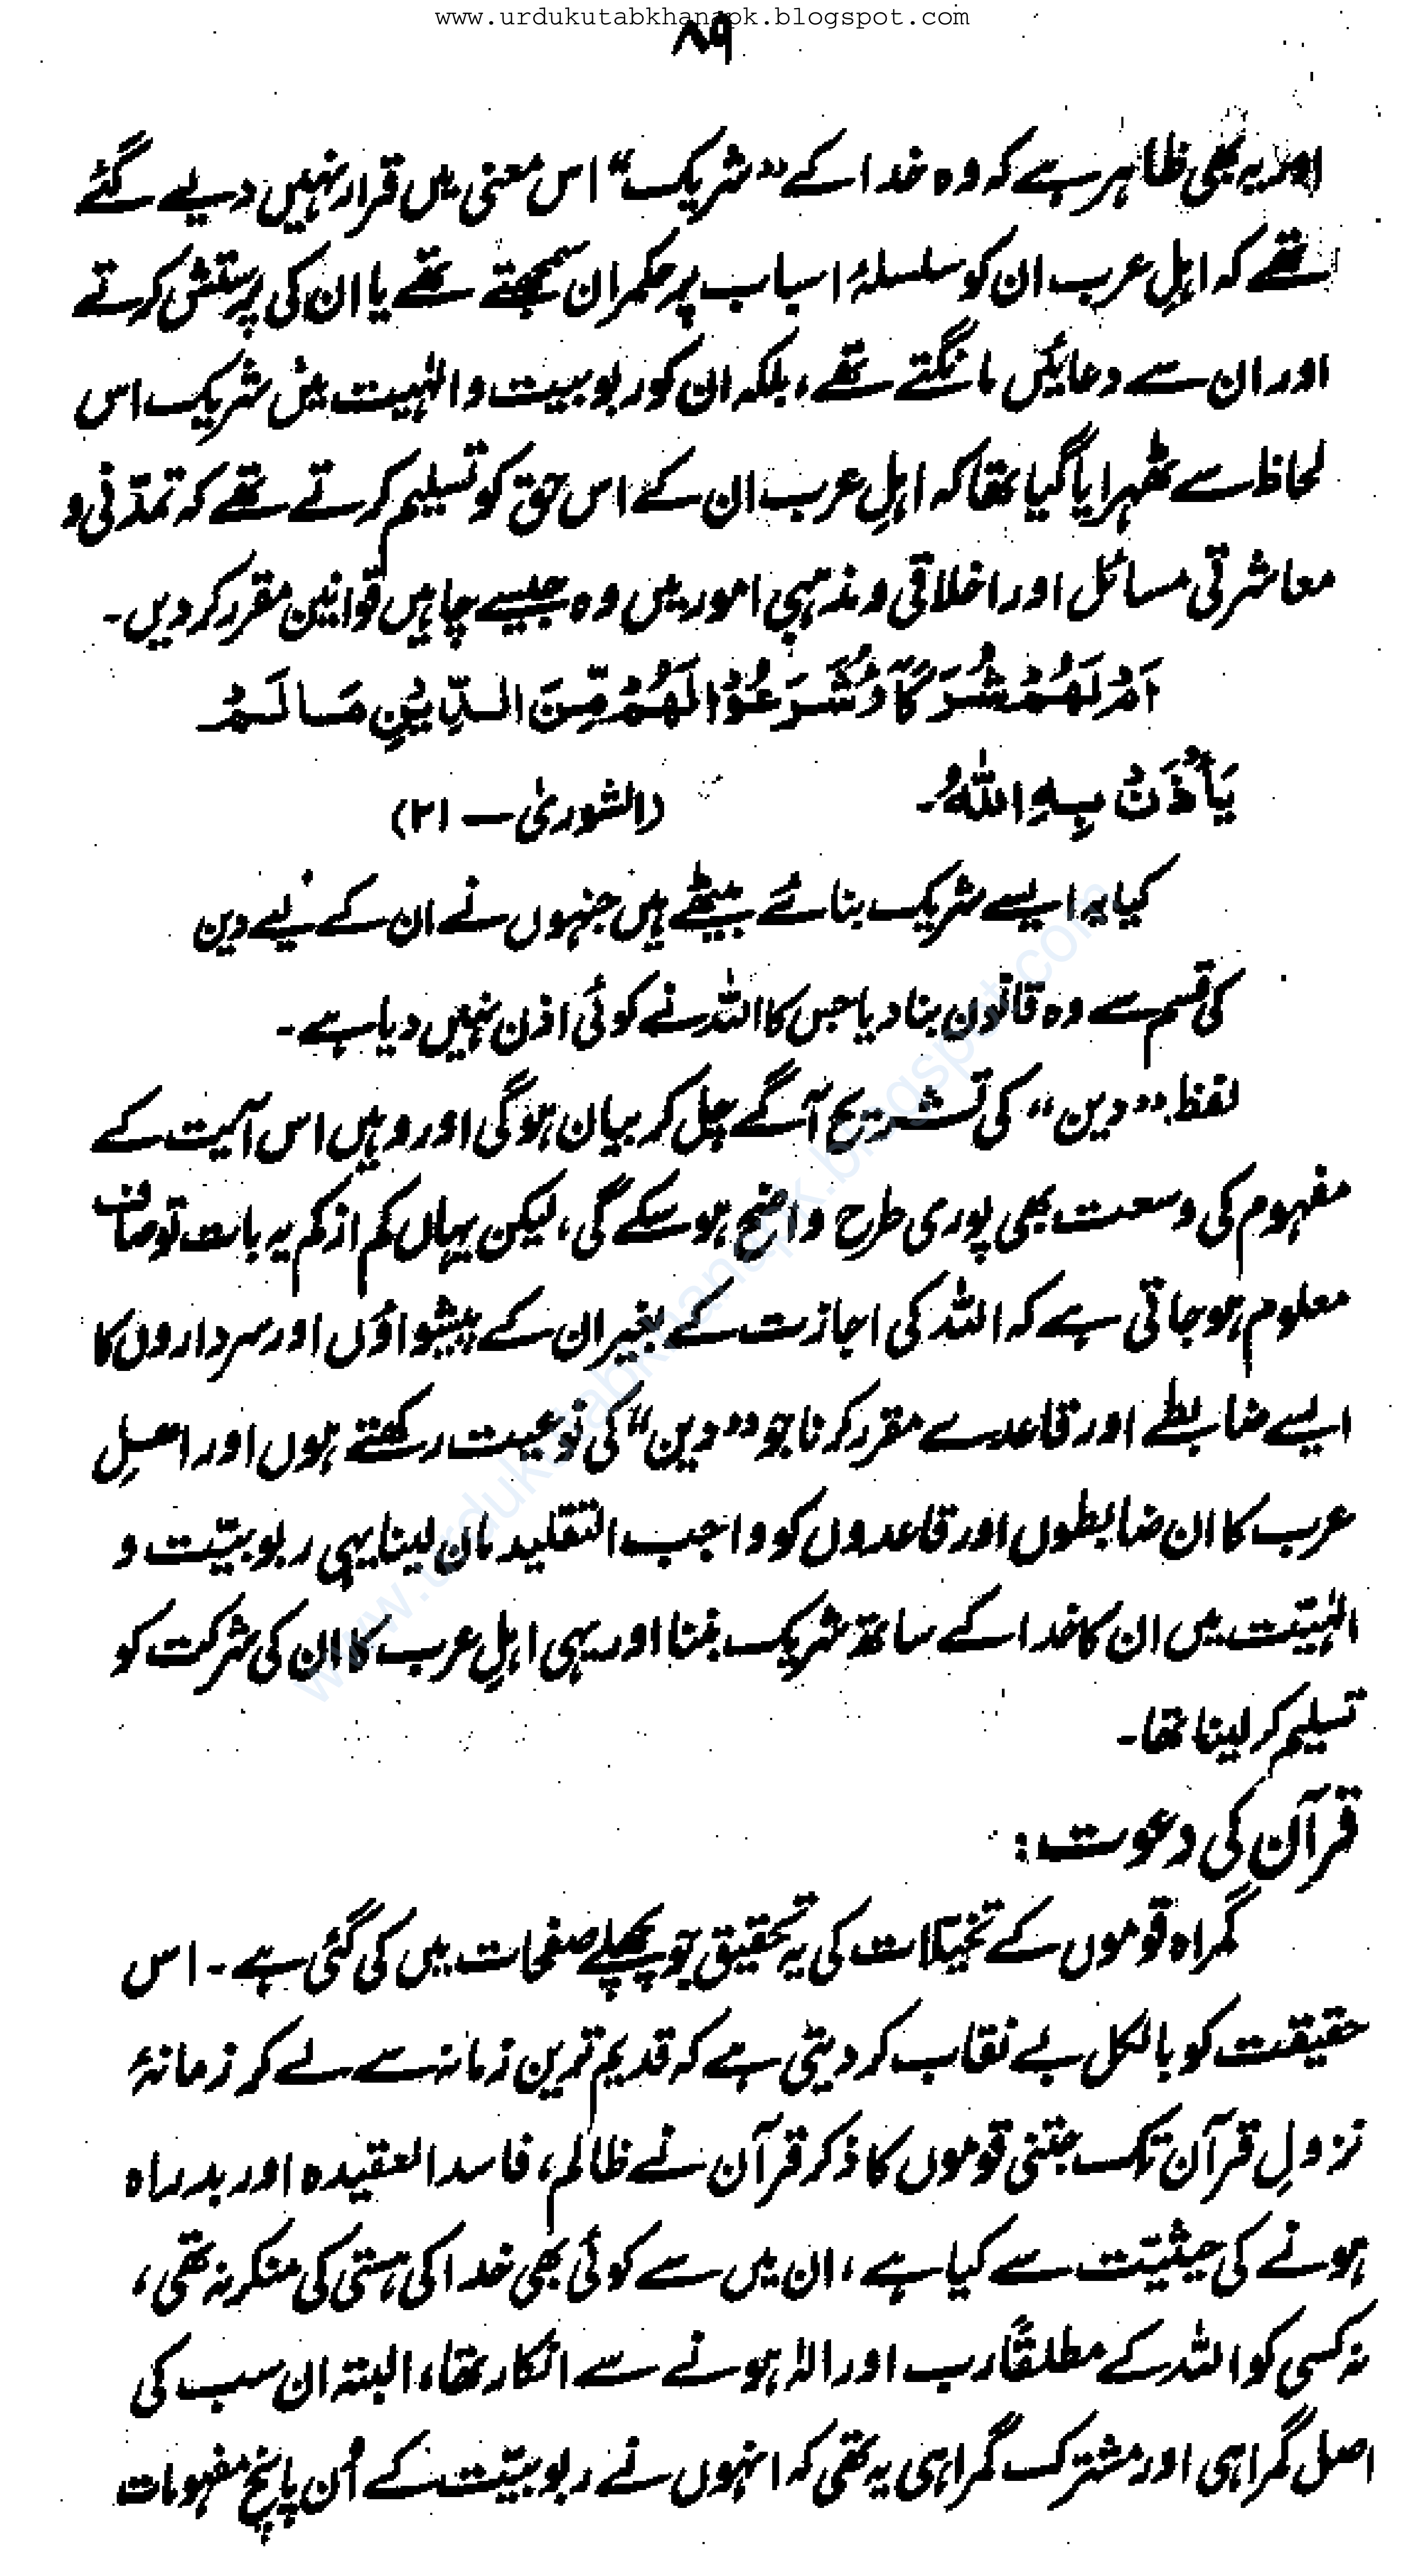 www.urdukutabkhanapk.blogspot.com
۸۹
اور یہ بھی ظاہر ہے کہ وہ خدا کے ”شریک“ اس معنی میں قرار نہیں دیے گئے
تھے کہ اہلِ عرب ان کو سلسلۂ اسباب پر حکمران سمجھتے تھے یا ان کی پرستش کرتے
اور ان سے دعائیں مانگتے تھے، بلکہ ان کو ربوبیت و الٰہیت میں شریک اس
لحاظ سے ٹھہرایا گیا تھا کہ اہلِ عرب ان کے اس حق کو تسلیم کرتے تھے کہ تمدّنی و
معاشرتی مسائل اور اخلاقی و مذہبی امور میں وہ جیسے چاہیں قوانین مقرر کر دیں۔
اَمْ لَهُمْ شُرَكَآؤُ شَرَعُوْا لَهُمْ مِّنَ الدِّيْنِ مَا لَمْ
يَأْذَنْ بِهِ اللّٰهُ۔ (الشوریٰ – ۲۱)
کیا یہ ایسے شریک بنائے بیٹھے ہیں جنہوں نے ان کے لیے دین
کی قسم سے وہ قانون بنا دیا جس کا اللہ نے کوئی اذن نہیں دیا ہے۔
لفظ ”دین“ کی تشریح آگے چل کر بیان ہوگی اور وہیں اس آیت کے
مفہوم کی وسعت بھی پوری طرح واضح ہو سکے گی، لیکن یہاں کم از کم یہ بات تو صاف
معلوم ہو جاتی ہے کہ اللہ کی اجازت کے بغیر ان کے پیشواؤں اور سرداروں کا
ایسے ضابطے اور قاعدے مقرر کرنا جو ”دین“ کی نوعیت رکھتے ہوں اور اہلِ
عرب کا ان ضابطوں اور قاعدوں کو واجب التقلید مان لینا یہی ربوبیّت و
الٰہیّت میں ان کا خدا کے ساتھ شریک بننا اور یہی اہلِ عرب کا ان کی شرکت کو
تسلیم کر لینا تھا۔
قرآن کی دعوت:
گمراہ قوموں کے تخیّلات کی یہ تحقیق جو پچھلے صفحات میں کی گئی ہے۔ اس
حقیقت کو بالکل بے نقاب کر دیتی ہے کہ قدیم ترین زمانہ سے لے کر زمانۂ
نزولِ قرآن تک جتنی قوموں کا ذکر قرآن نے ظالم، فاسد العقیدہ اور بدراہ
ہونے کی حیثیّت سے کیا ہے، ان میں سے کوئی بھی خدا کی ہستی کی منکر نہ تھی،
نہ کسی کو اللہ کے مطلقاً رب اور الٰہ ہونے سے انکار تھا، البتہ ان سب کی
اصل گمراہی اور مشترک گمراہی یہ تھی کہ انہوں نے ربوبیّت کے اُن پانچ مفہومات
www.urdukutabkhanapk.blogspot.com